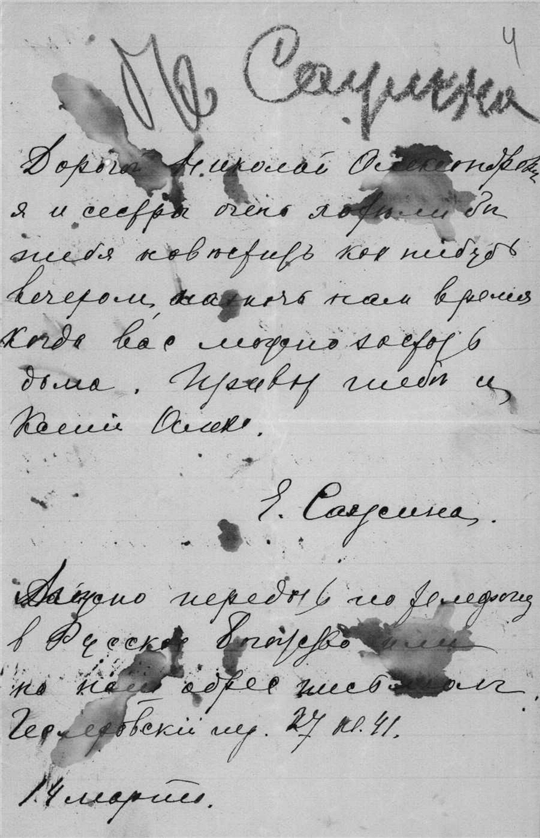 4
Дорогой Николай Александрович
я и сестры очень хотели бы
тебя навестить как нибудь
вечером, назначь нам время
когда вас можно застать
дома. Привет тебе и
Ксении Алекс.
Е. Саусина.
Можно передать по телефону
в Русское Богатство или
на наш адрес письмом.
Геслеровскій пер. 27 кв. 41.
14 марта.